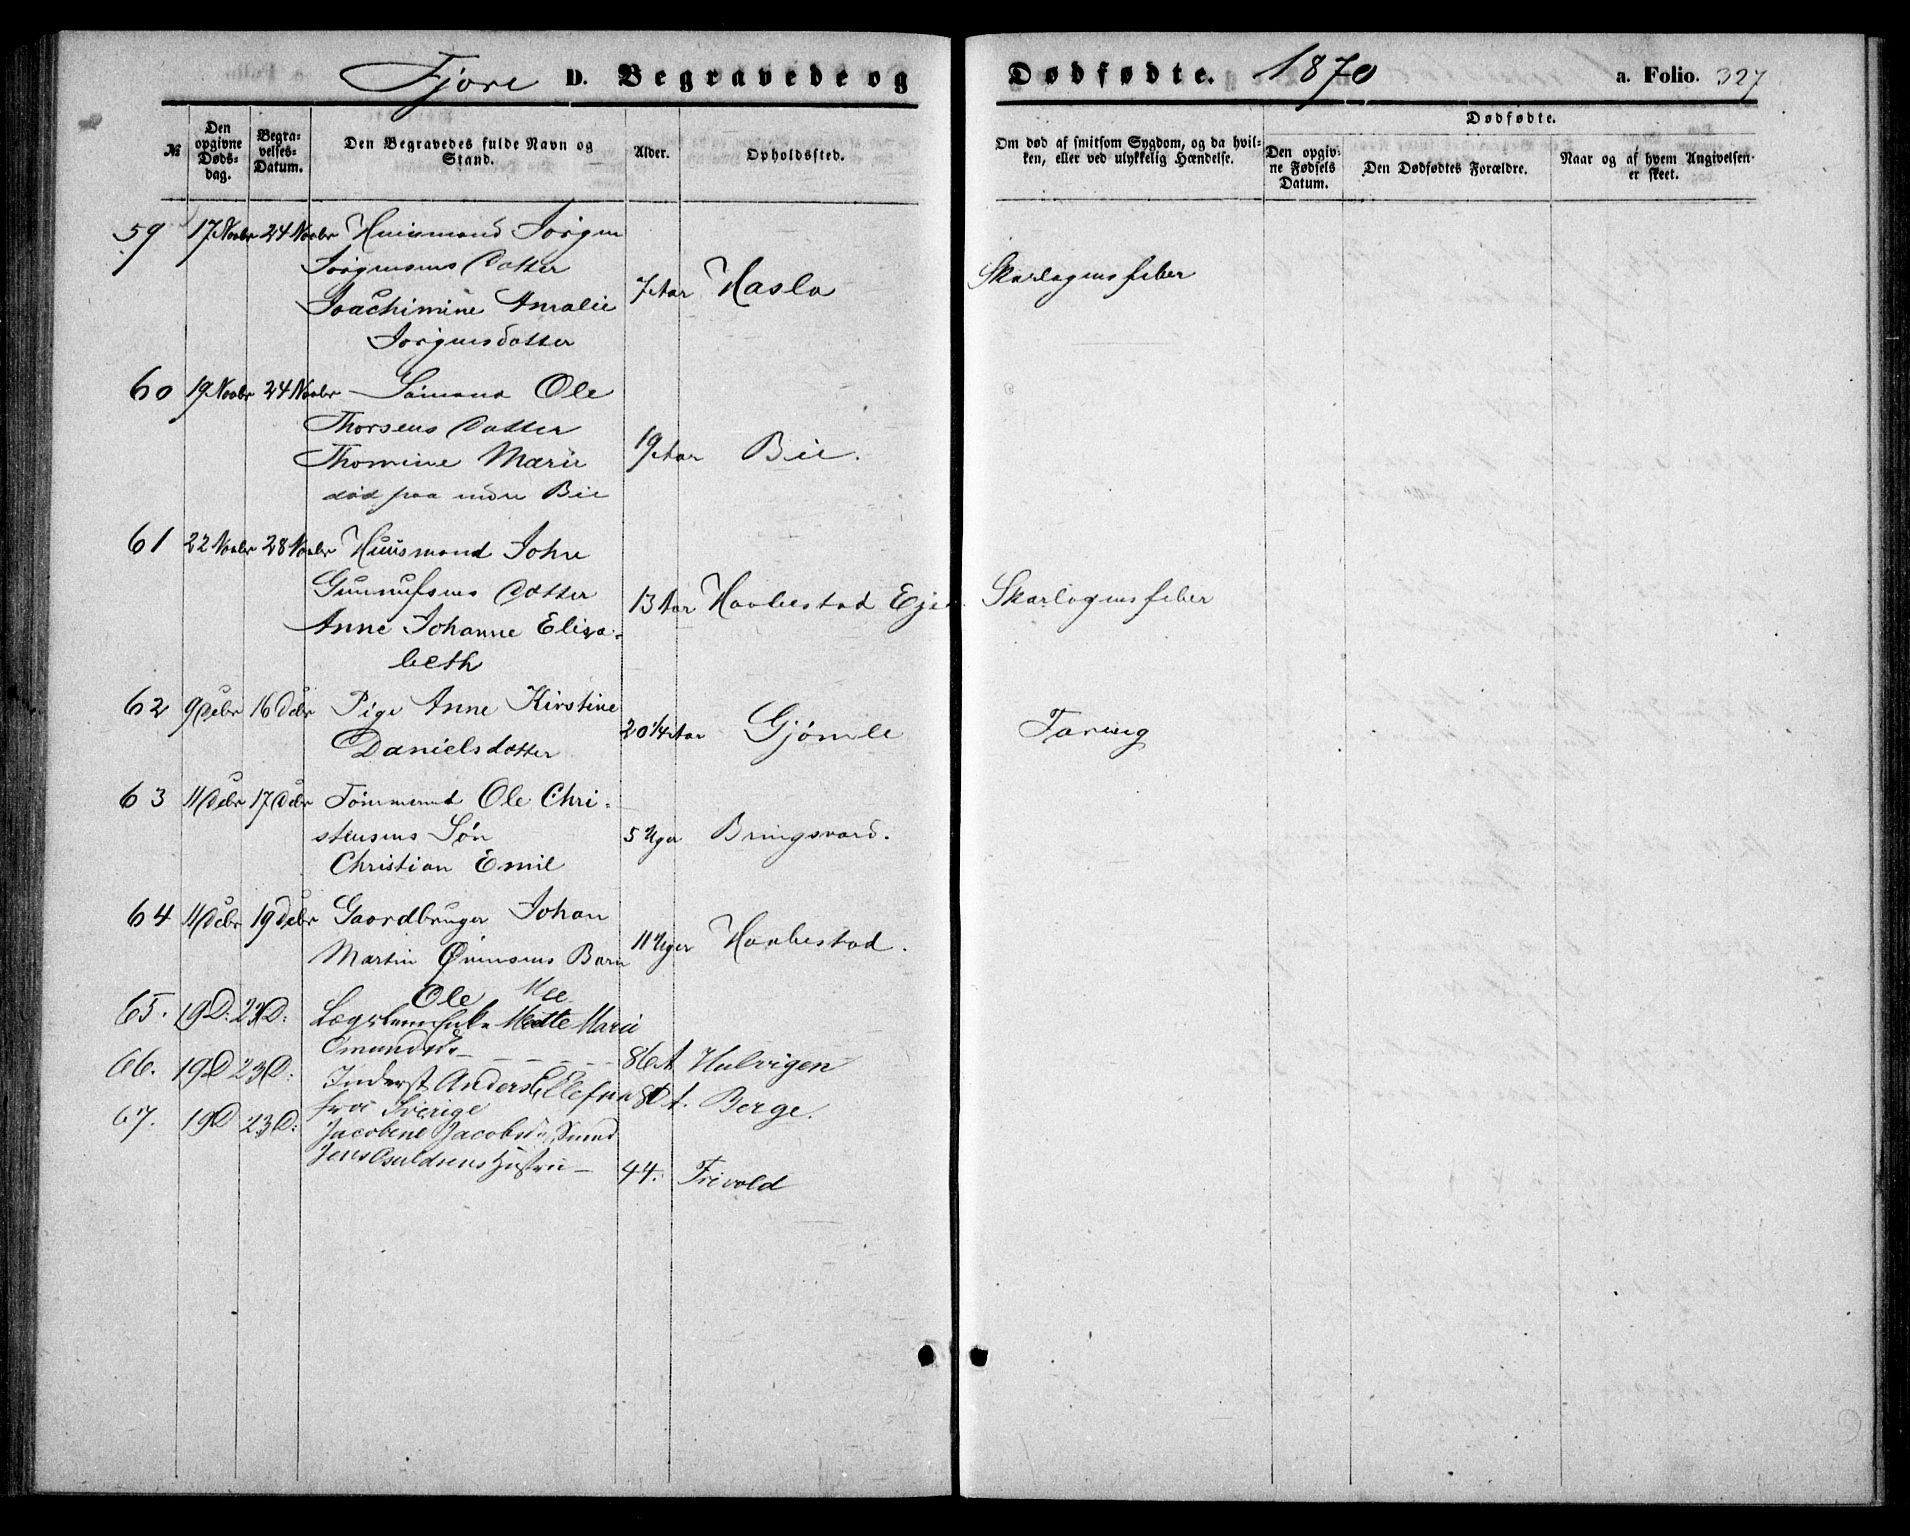 Fjære D. Begravede og Dødfødte. 1870 a. Folio. 327
Dødfødte.
№ Den opgivne Døds-dag. Begra-velses-Datum. Den Begravedes fulde Navn og Stand. Alder. Opholdssted. Om død af smitsom Sygdom, og da hvil-ken, eller ved ulykkelig Hændelse. Den opgiv-ne Fødsels Datum. Den Dødfødtes Forældre. Naar og af hvem Angivelsen er skeet.
59 17 Novbr 24 Novbr Huusmand Jørgen
Jørgensens Datter
Joachimine Amalie 7 Aar Hasla Skarlagensfeber
Jørgensdatter
60 19 Novbr 24 Novbr Sømand Ole
Thorsens Datter
Thomine Marie 19 Aar Bie.
død paa indre Bie
61 22 Novbr 28 Novbr Huusmand John
Gunnufsens Datter
Anne Johanne Elisa- 13 Aar Havbestad Eje Skarlagensfeber
beth
62 9 Debr 16 Debr Pige Anne Kirstine
Danielsdatter 20 1/4 Aar Gjømle Tæring
63 11 Debr 17 Debr Tømmermd Ole Chri-
stensens Søn 5 Uger Bringsværd.
Christian Emil
64 11 Debr 19 Debr Gaardbruger Johan
Martin Øvensens Barn 11 Uger Havbestad.
Ole
65. 19 D: 23 D: Lægslem Enke Mette Marie
Omundsd. 86 A Hulvigen
66. 19 D 23 D: Inderst Anders Ellefsen
fra Sverige 80 A. Berge.
67. 19 D 23 D: Jacobine Jacobsd. Smed
Jens Osuldsens Hustru 44. Frivold